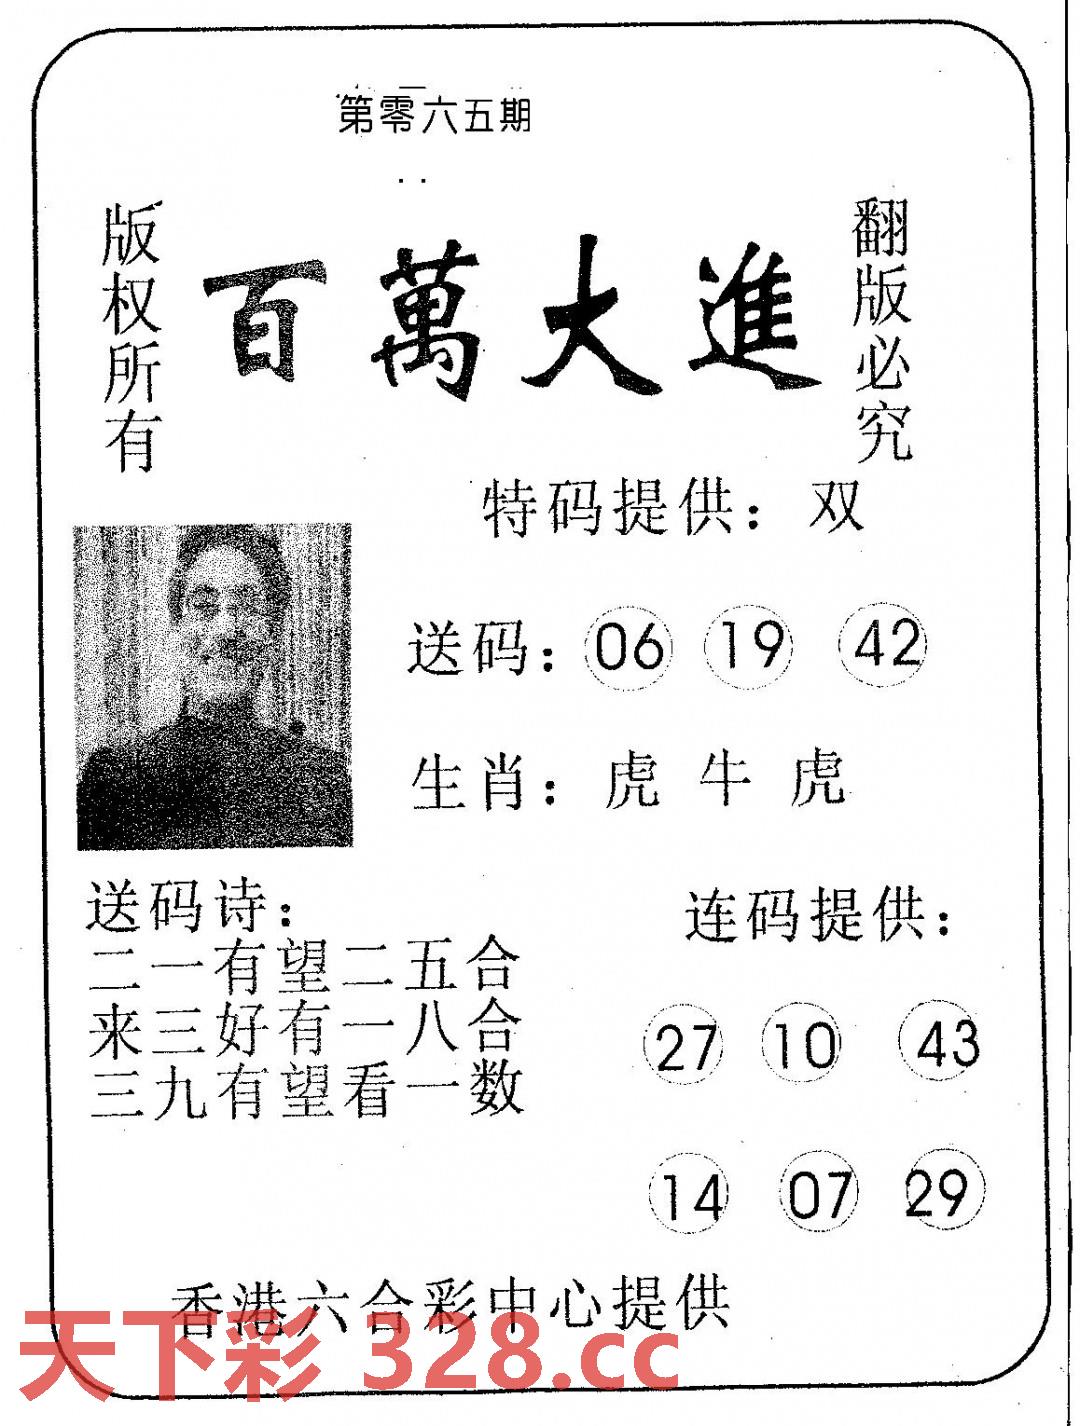 第零六五期
版权所有
百萬大進
翻版必究
特码提供：双
送码：06 19 42
生肖：虎 牛 虎
送码诗：
二一有望二五合
来三好有一八合
三九有望看一数
连码提供：
27 10 43
14 07 29
香港六合彩中心提供
天下彩 328.cc